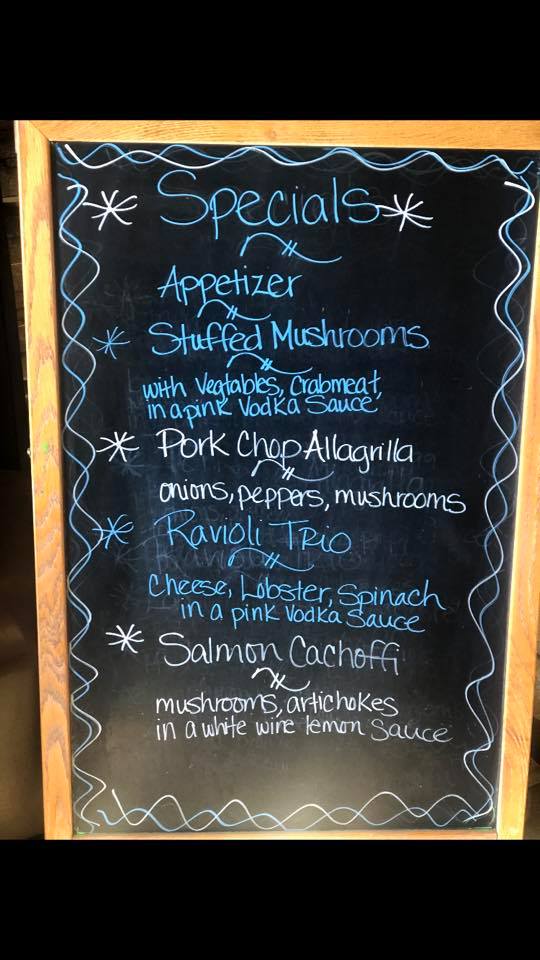 Specials
Appetizer
Stuffed Mushrooms
with Vegtables, Crabmeat,
in a pink Vodka Sauce
Pork Chop Allagrilla
onions, peppers, mushrooms
Ravioli Trio
Cheese, Lobster, Spinach
in a pink Vodka Sauce
Salmon Cachoffi
mushrooms, artichokes
in a white wine lemon Sauce